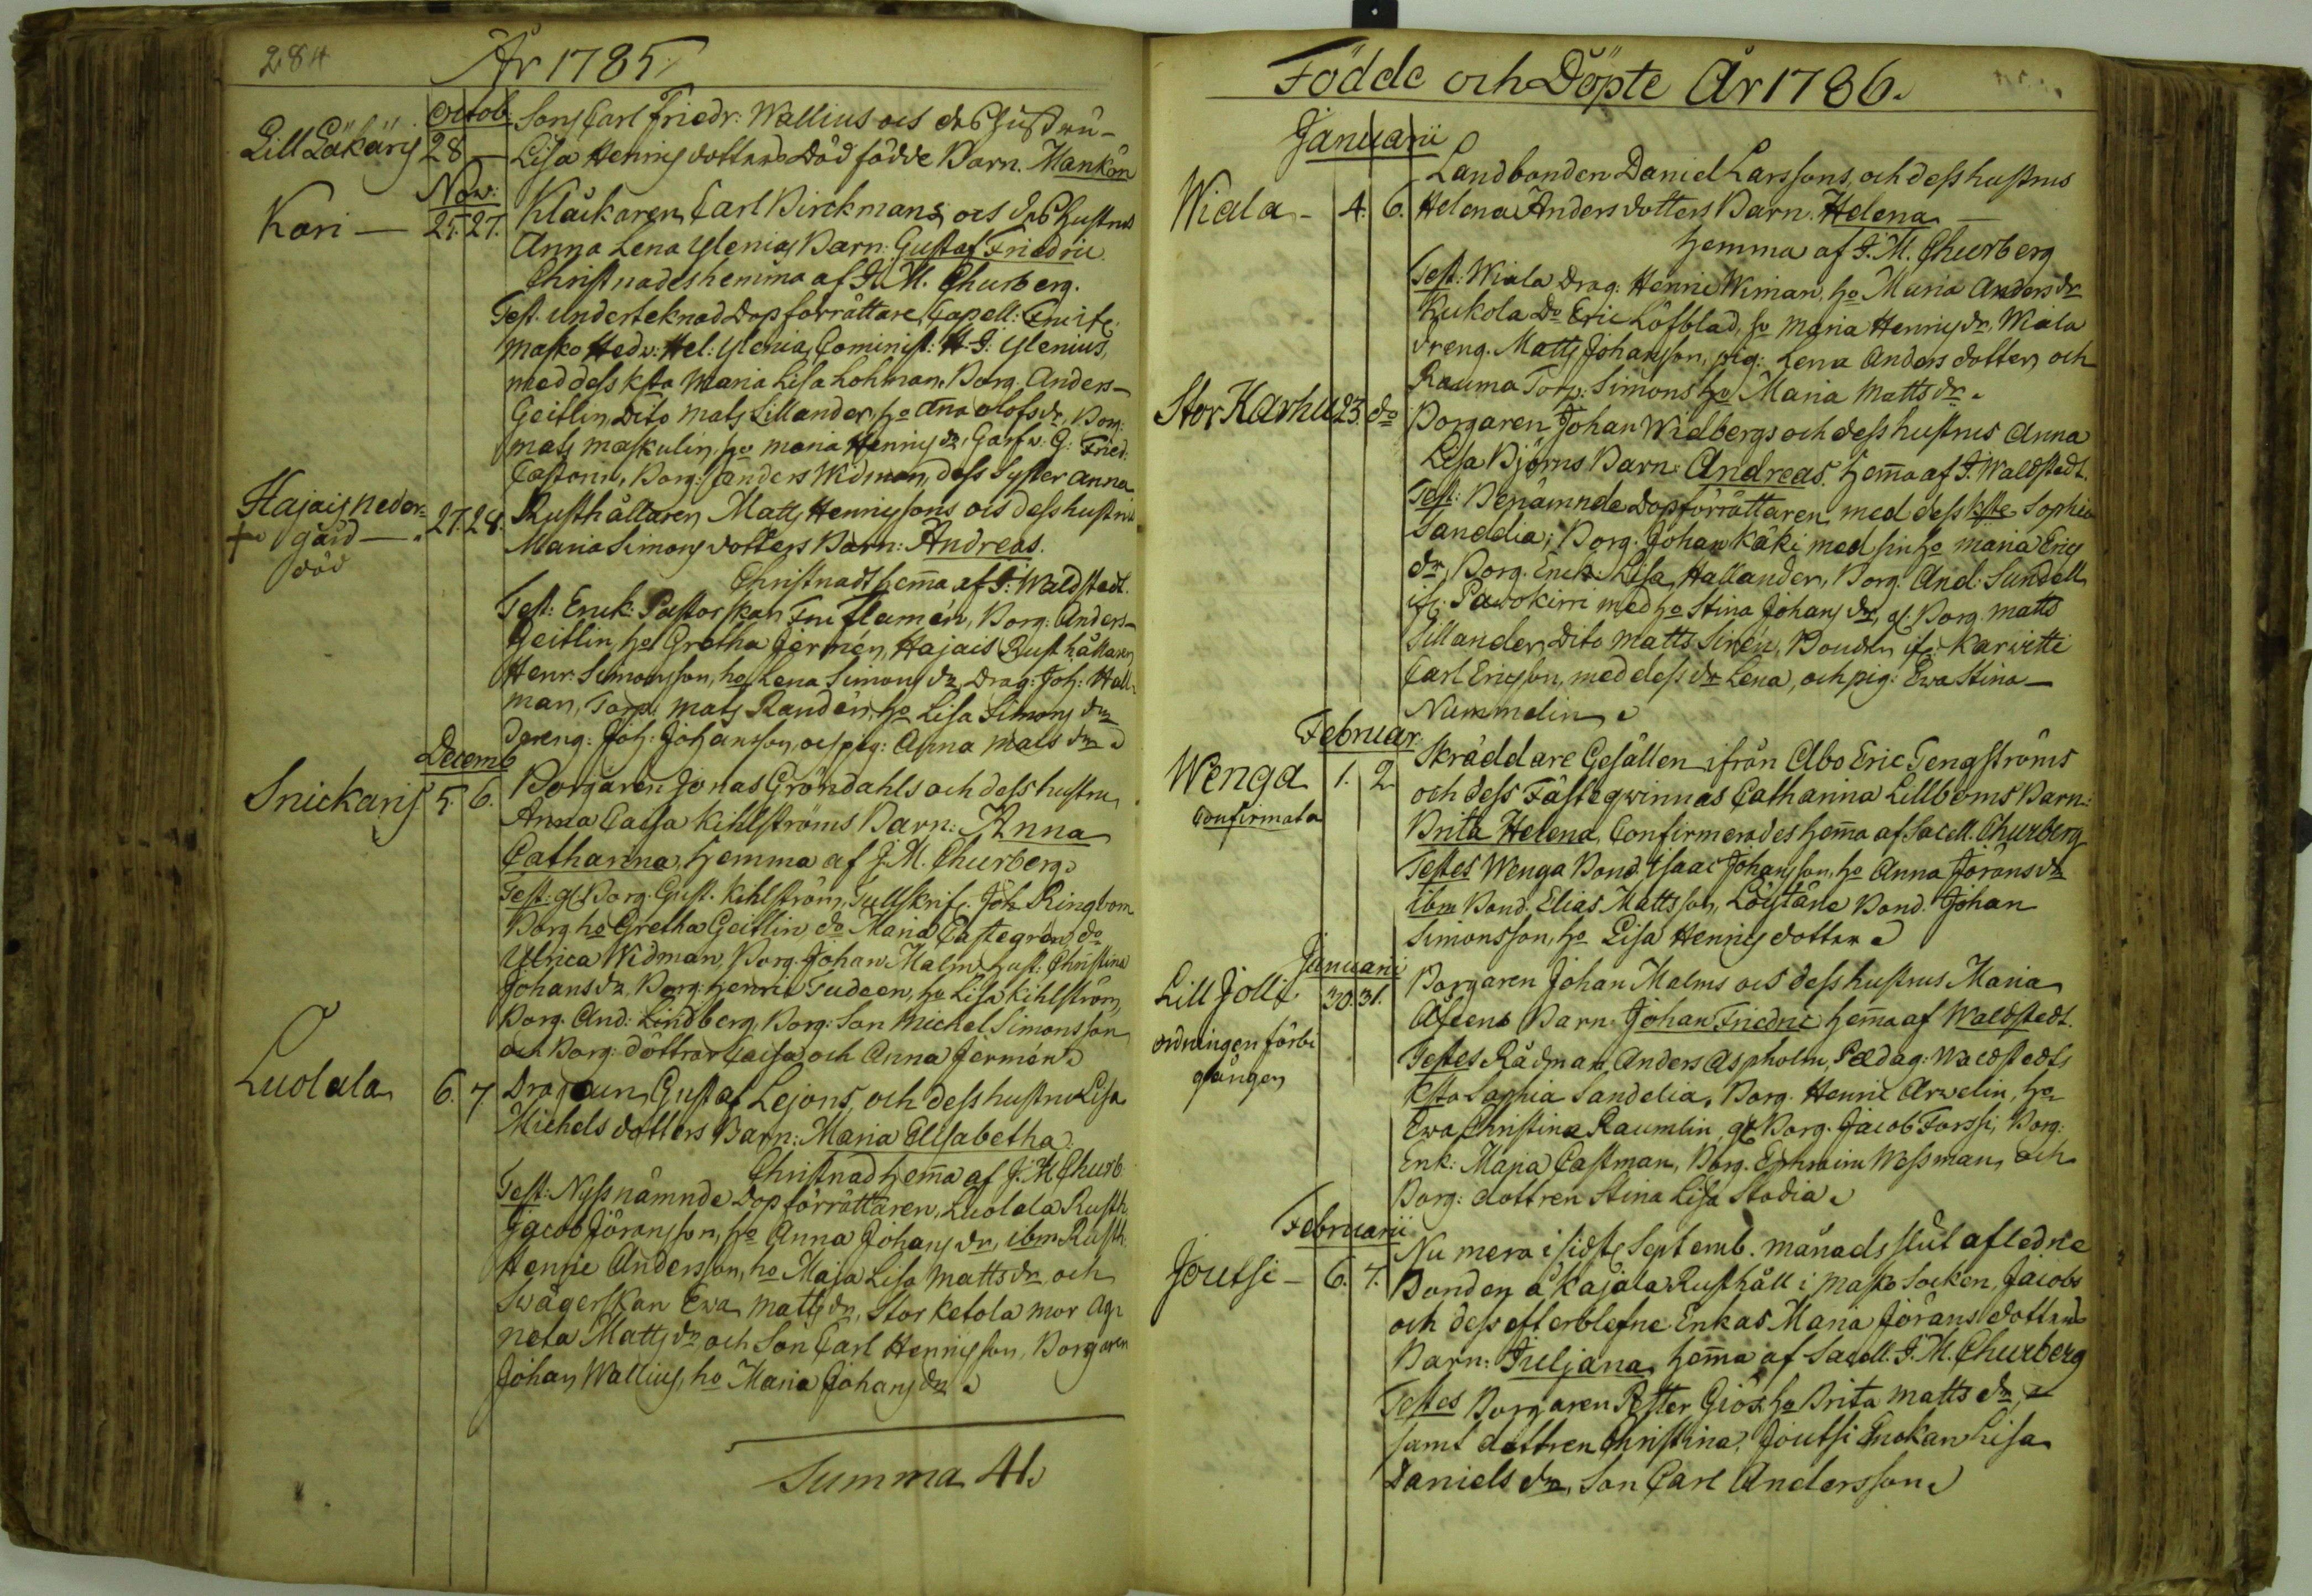 284
År 1785.
Octob.
Lill Läkäris 28 — Sonen Carl Friedr: Wallius och des hustrus
Lisa Henrics dotters Död födde Barn. Mankön
Nov:
Kari — 25. 27. Klåckaren Carl Birckmans och des hustrus
Anna Lena Ylenias Barn: Gustaf Friedric
Christnades hemma af J. M. Churberg.
Test. undertecknad Dopförrättare, Capell:
Masko Hedv: Hel: Ylenia, Cominist: H. J: Ylenius,
med dess k:sta Maria Lisa Lohman, Borg. Anders
Geitlin, Dito Mats Lillander, ho Ana Olofs dr, Borg:
Mats Maskulin, ho Maria Henrics dr, Garfv: G. Fried:
Castorin, Borg: Anders Widman, dess Syster Anna
Hajais nedar= 27. 28. Rusthållaren Matts Henricssons och dess hustrus
+ gård —
död
Maria Simons dotters Barn: Andreas.
Christnadt hema af J: Waldstedt.
Test: Enck: Pastorskan Fru Flamén, Borg: Anders
Geitlin, ho Gretha Jermén, Hajais Rusthållaren
Henr: Simonsson, ho Lena Simons dr, Drag: Joh: Hall-
man, Torp. Mats Randén, ho Lisa Simons dr
Dreng: Joh: Johansson, och pig: Anna Mats dr
Decemb
Snickaris 5. 6. Borgaren Jonas Gröndahls och dess hustrus
Anna Caisa Kihlströms Barn: Anna
Catharina, hemma af J. M. Churberg
Test: gl. Borg. Gust. Kihlström, Tullskrif. Joh Ringbom
Borg ho Gretha Geitlin, do Maria Castegrén, do
Ulrica Widman, Borg. Johan Malm, hust: Christina
Johans dr, Borg: Henric Tudeen, ho Lisa Kihlström,
Borg. And: Lindberg, Borg: Son Michel Simonsson
och Borg: döttrar Caisa och Anna Jermén
Luolala 6. 7. Dragoun Gustaf Lejons, och dess hustrus Lisa
Michels dotters Barn: Maria Elisabetha.
Christnad hema af J. M. Churb
Test: Nyssnämnde Dopförrättaren, Luolala Rusth
Jacob Jöransson, ho Anna Johans dr, ibm Rusth.
Henric Andersson, ho Maja Lisa Matts dr och
Swägerskan Ewa Matts dr, Stor Ketola mor Ag-
neta Matts dr, och Son Carl Henricsson, Borgaren
Johan Wallius, ho Maria Johans dr
Summa 41.
Födde och Döpte År 1786.
Januarii
Landbonden Daniel Larssons, och dess hustrus
Wiala — 4. 6. Helena Anders dotters Barn. Helena —
hemma af J. M. Churberg
Test: Wiala Drag: Henric Wiman, ho Maria Anders dr
Kukola Do Eric Löfblad, ho Maria Henrics dr, Wiala
dreng. Matts Johansson, pig: Lena Anders dotter, och
Rauma Torp: Simons ho Maria Matts dr.
Stor Karhu 23. do Borgaren Johan Widbergs och dess hustrus Anna
Lisa Björns Barn: Andreas. hema af J. Waldstedt.
Test: Benämnde Dopförrättaren med dess k:sta Sophia
Sandelia; Borg. Johan Käki med sin ho Maria Erics
dr, Borg. Enck: Lisa Hallander, Borg: And: Sundell
if: Pawokirri med ho Stina Johans dr, gl. Borg. Matts
Sillander, Dito Matts Sirén, Bonden if. Karwitti
Carl Ericsson, med dess dr Lena, och pig: Ewa Stina
Nummelin
Februar:
Wenga 1. 2 Skräddare Gesällen ifrån Åbo Eric Tengströms
Confirmata
och dess Fästeqwinnas Catharina Lillboms Barn:
Brita Helena, Confirmerades hema af Sacell. Churberg
Testes Wenga Bond. Isaac Johansson, ho Anna Jörans dr
ibm Bond. Elias Mattsson, Löytäne Bond. Johan
Simonsson, ho Lisa Henrics dotter
Januarii
Lill Jolli 30. 31. Borgaren Johan Malms och dess hustrus Maria
ordningen förbi
gången
Aleens Barn: Johan Friedric hema af Waldstedt.
Testes Rådman Anders Aspholm, Pædag: Waldstedts
k:sta Sophia Sandelia, Borg. Henric Arwelin, ho
Ewa Christina Raumlin, gl. Borg. Jacob Forssi, Borg:
Enk: Maja Castman, Borg. Ephraim Wessman, och
Borg: dottren Stina Lisa Stadia
Februarii
Joutsi — 6. 7. Nu mera i sidste Septemb. månads slut aflednе
Bonden å Kajala Rusthåll i Masko Socken, Jacobs
och dess efterblefne Enkas Maria Jörans dotters
Barn: Juljana, hema af Sacell. J. M. Churberg
Testes Borgaren Petter Giös, ho Brita Matts dr,
samt dottren Christina, Joutsi Enckan Lisa
Daniels dr, Son Carl Andersson